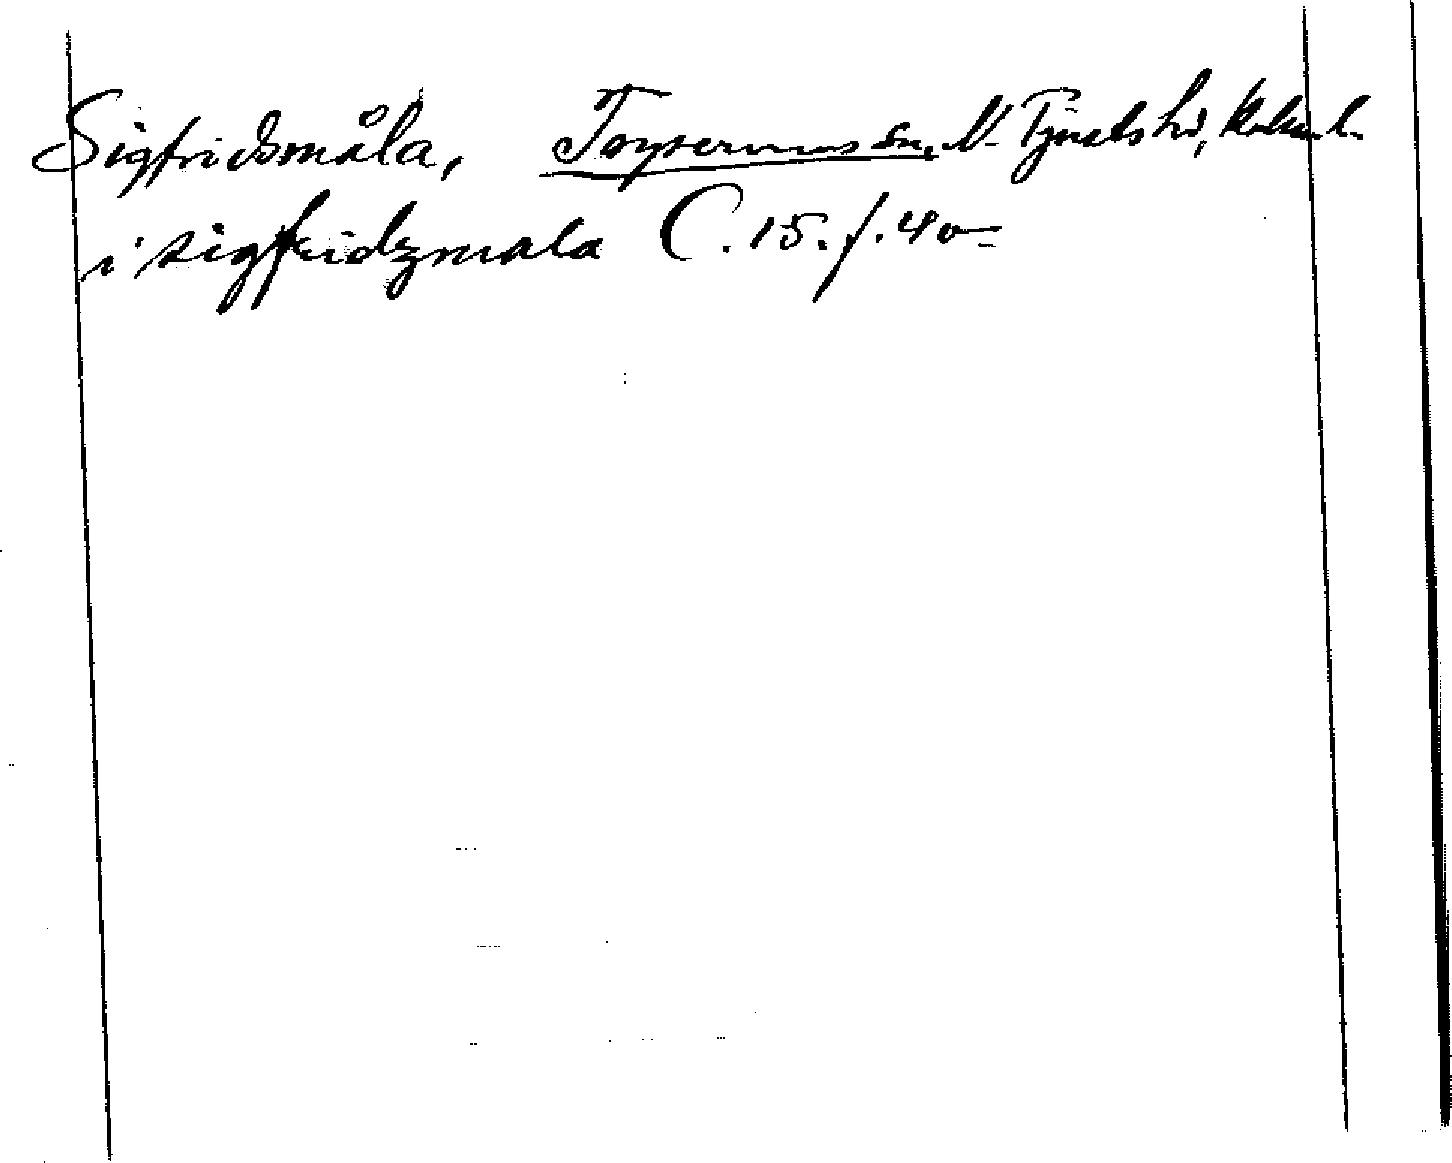 Sigfridsmåla, Torsås sn, N. Tjusts hd, Kalm. l.
i sigfridzmala C. 15. f. 40